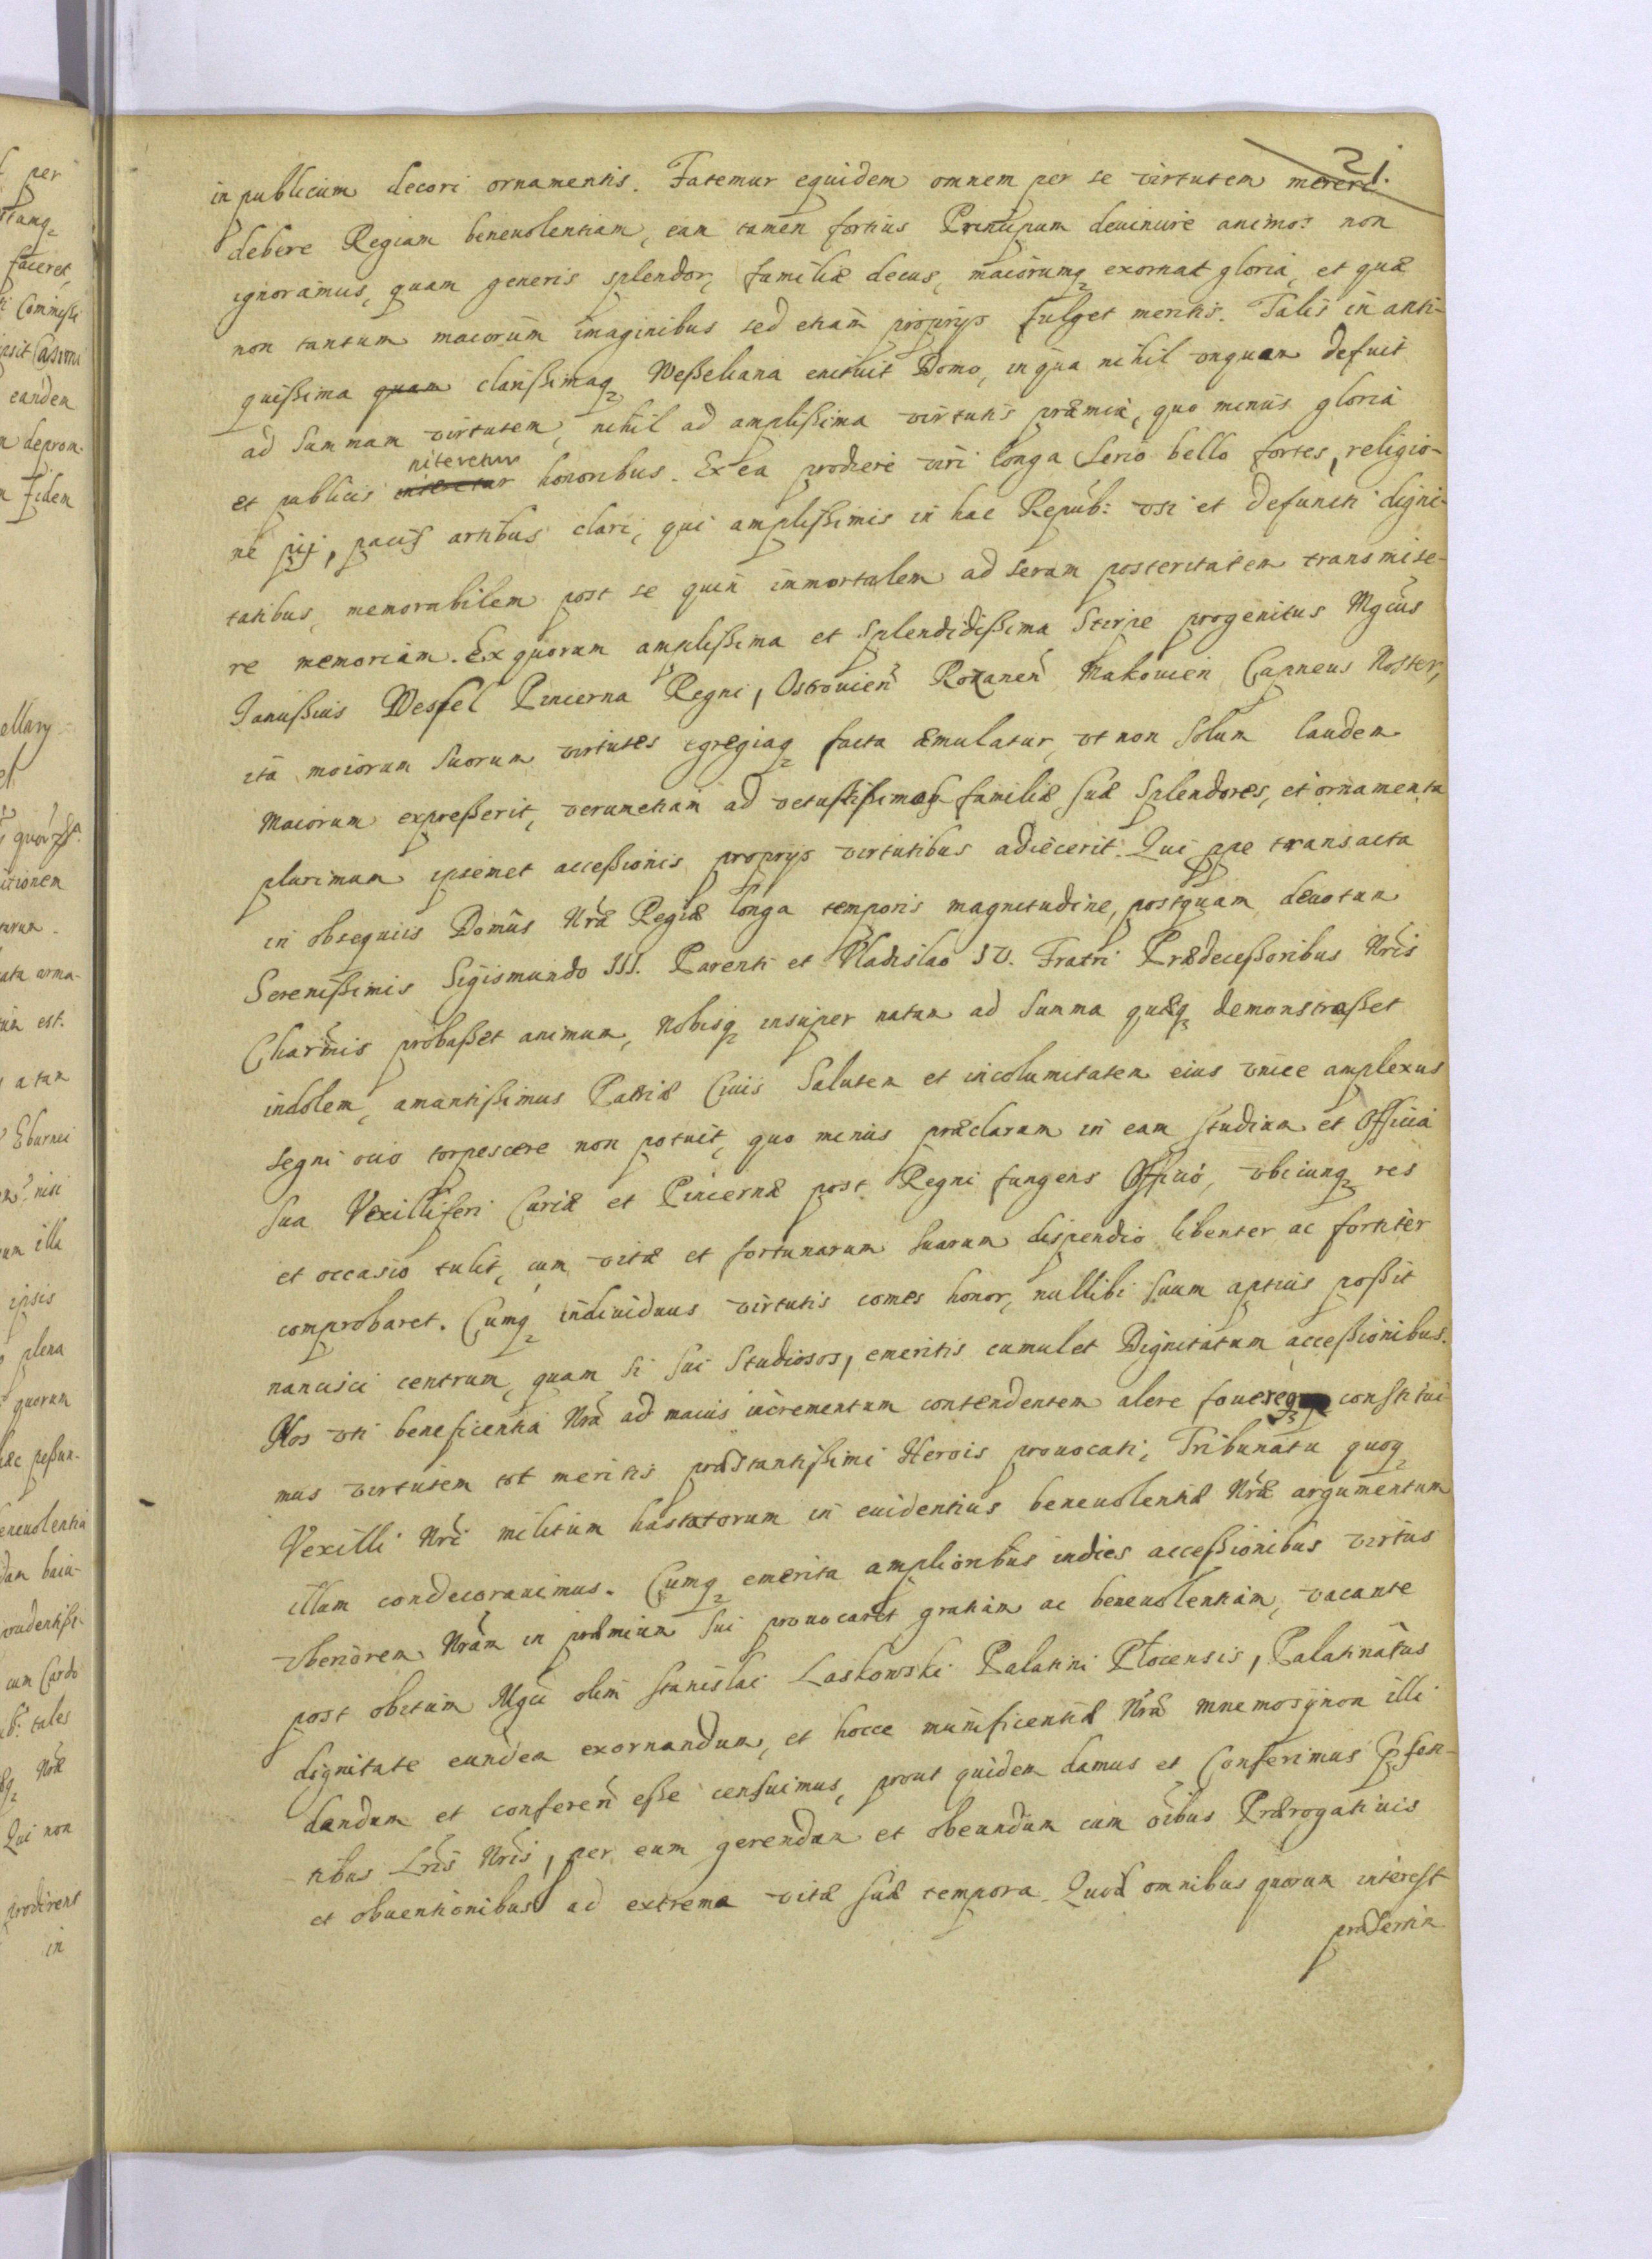 21.
in publicum decori ornamentis. Fatemur equidem omnem per se virtutem mereri
debere Regiam beneuolentiam, eam tamen fortius Principum deuincire animos non
ignoramus, quam generis splendor, familiæ decus, maiorumq exornat gloria, et quæ
non tantum maiorum imaginibus sed etiam proprijs fulget meritis. Talis in anti-
quissima quam clarissimaq Wesseliana enituit Domo, in qua nihil vnquam defuit
ad summam virtutem, nihil ad amplissima virtutis præmia, quo minus gloria
niteretur
et publicis honoribus. Ex ea prodiere viri longa Serio bello fortes, religio-
ne pij, pacis artibus clari, qui amplissimis in hac Repub: vsi et defuncti digni-
tatibus, memorabilem post se quin immortalem ad seram posteritatem transmise-
re memoriam. Ex quorum amplissima et splendidissima Stirpe progenitus Mgcus
Janussius Wessel Pincerna Regni, Ostrouien Rozanen Makouien Capneus Noster,
ita maiorum suorum virtutes egregiaq facta æmulatur, vt non solum laudem
Maiorum expresserit, verumetiam ad vetustissimos familiæ suæ Splendores, et ornamenta
plurimum ipsemet accessionis proprijs virtutibus adiecerit. Qui ppe transacta
in obsequiis Domus Nræ Regiæ longa temporis magnitudine, postquam deuotum
Serenissimis Sigismundo III. Parenti et Vladislao IV. Fratri Prædecessoribus Nris
Charmis probasset animum, Nobisq insuper natam ad summa quæq demonstrasset
indolem, amantissimus Patriæ Ciuis Salutem et incolumitatem eius vnice amplexus
segni ocio torpescere non potuit, quo minus præclarum in eam studium et Officia
sua Vexilliferi Curiæ et Pincernæ post Regni fungens Officio, vbicunq res
et occasio tulit, cum vitæ et fortunarum suarum dispendio libenter ac fortiter
comprobaret. Cumq indiuiduus virtutis comes honor, nullibi suum aptius possit
nancisci centrum, quam si sui Studiosos, emeritis cumulet Dignitatum accessionibus.
Nos vti beneficentia Nra ad maius incrementum contendentem alere fouereq constitui-
mus virtutem tot meritis præstantissimi Herois prouocati, Tribunatu quoq
Vexilli Nri militum hastatorum in euidentius beneuolentiæ Nræ argumentum
illum condecorauimus. Cumq emerita amplioribus indies accessionibus virtus
vberiorem Nram in præmium sui prouocaret gratiam ac beneuolentiam, vacante
post obitum Mgci olim Stanislai Laskowski Palatini Plocensis, Palatinatus
dignitate eundem exornandum, et hocce munificentiæ Nræ mnemosynon illi
dandum et conferen esse censuimus, prout quidem damus et Conferimus Psen-
tibus Lris Nris, per eum gerendum et obeundum cum oibus Prærogatiuis
et obuentionibus ad extrema vitæ suæ tempora. Quod omnibus quorum interest
præsertim